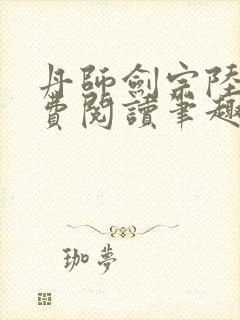 丹師劍宗陸
費閱讀筆趣
珈夢